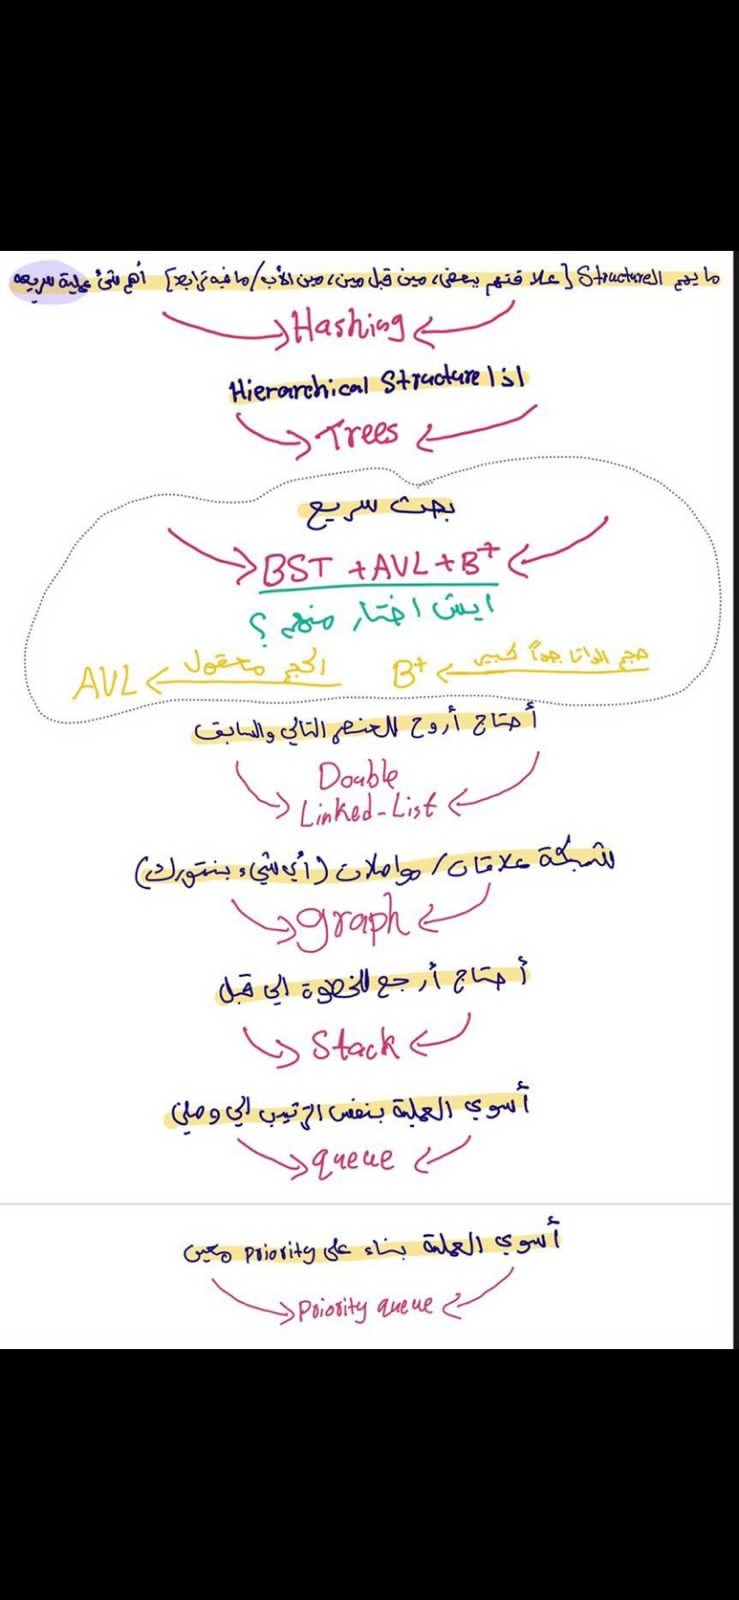 ما يهم الـ Structure [علاقتهم ببعض، مين قبل مين، مين الأب/ما فيه ترابط] أهم شئ عملية سريعه
Hashing
اذا Hierarchical Structure
Trees
بحث سريع
BST + AVL + B+
ايش اختار منهم؟
حجم الداتا جداً كبير B+
الحجم معقول AVL
أحتاج أروح للعنصر التالي والسابق
Double
Linked-List
شبكة علاقات/ مواصلات (أي شيء بنتورك)
graph
أحتاج أرجع للخطوة الي قبل
Stack
أسوي العملية بنفس الترتيب الي وصلني
queue
أسوي العملية بناء على Priority معين
Priority queue